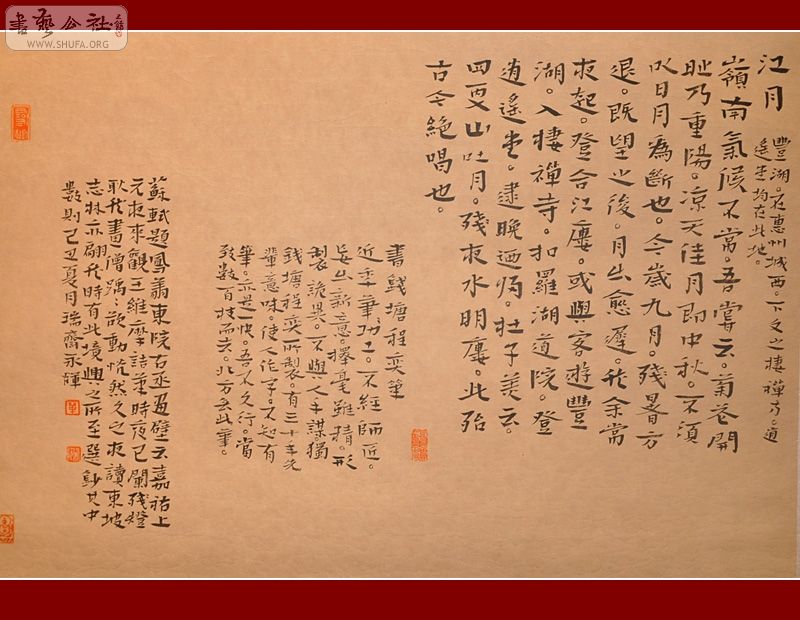 書藝公社
WWW.SHUFA.ORG
江月
豐湖。在惠州城西。下文之棲禪寺。逍
遙堂均在此地。
嶺南氣候不常。吾嘗云。菊花開
時乃重陽。涼天佳月即中秋。不須
以日月為斷也。今歲九月。殘暑方
退。既望之後。月出愈遲。然余常
夜起。登合江樓。或與客游豐
湖。入棲禪寺。扣羅湖道院。登
逍遙堂。逮晚迺歸。杜子美云。
四更山吐月。殘夜水明樓。此殆
古今絕唱也。
書錢塘程奕筆
近年筆工。不經師匠。
妄出新意。擇毫雖精。形
製詭異。不與人手謀。獨
錢塘程奕所製。有三十年先
輩意味。使人作字。不知有
筆。亦是一快。吾不久行。當
致數百枝而去。北方無此筆。
蘇軾題鳳翔東院右丞畫壁云嘉祐上
元夜來觀王維摩詰筆時夜已闌殘燈
耿然畫僧踽々欲動恍然久之夜讀東坡
志林亦翩然時有此境興之所至選鈔其中
數則己丑夏月瑞齋永輝